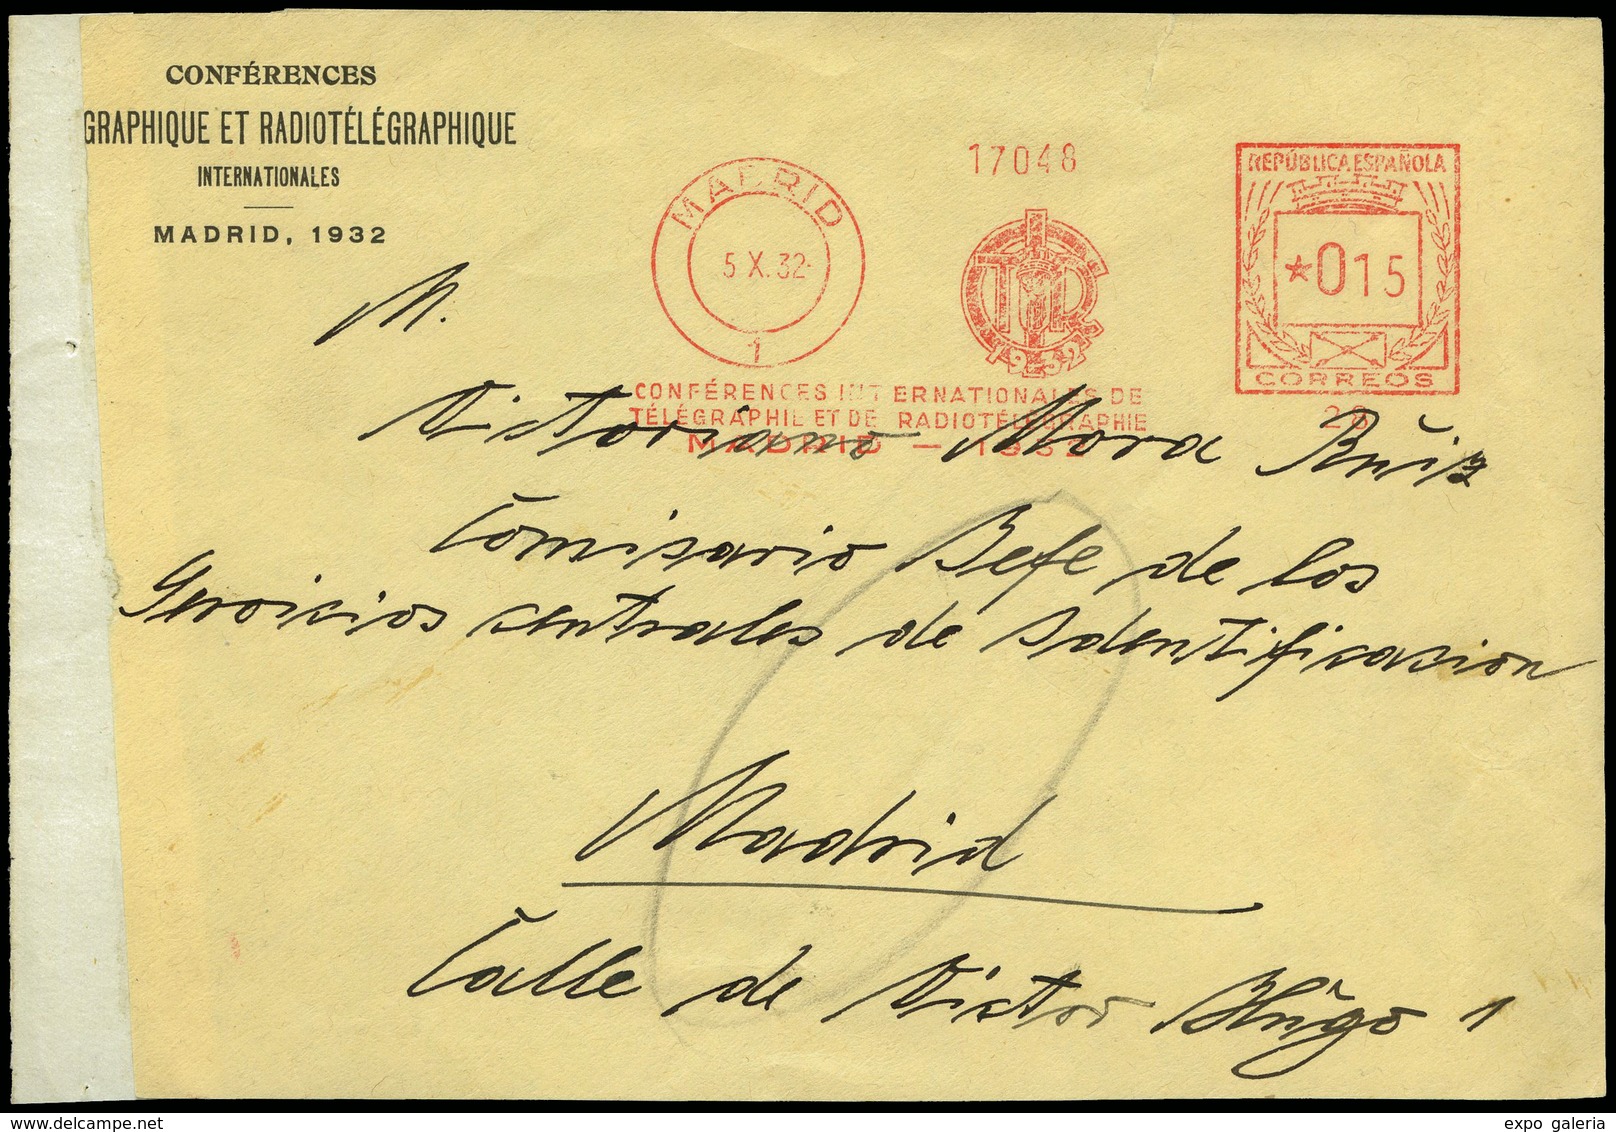 CONFÉRENCES
GRAPHIQUE ET RADIOTÉLÉGRAPHIQUE
INTERNATIONALES
MADRID, 1932
MADRID
5 X. 32
1
17048
TIR
1932
REPÚBLICA ESPAÑOLA
*015
CORREOS
28
CONFÉRENCES INTERNATIONALES DE
TÉLÉGRAPHIE ET DE RADIOTÉLÉGRAPHIE
MADRID — 1932
M.
Victoriano Mora Ruiz
Comisario Befe de los
Servicios centrales de Identificacion
Madrid
Calle de Victor Hugo 1
expo galeria